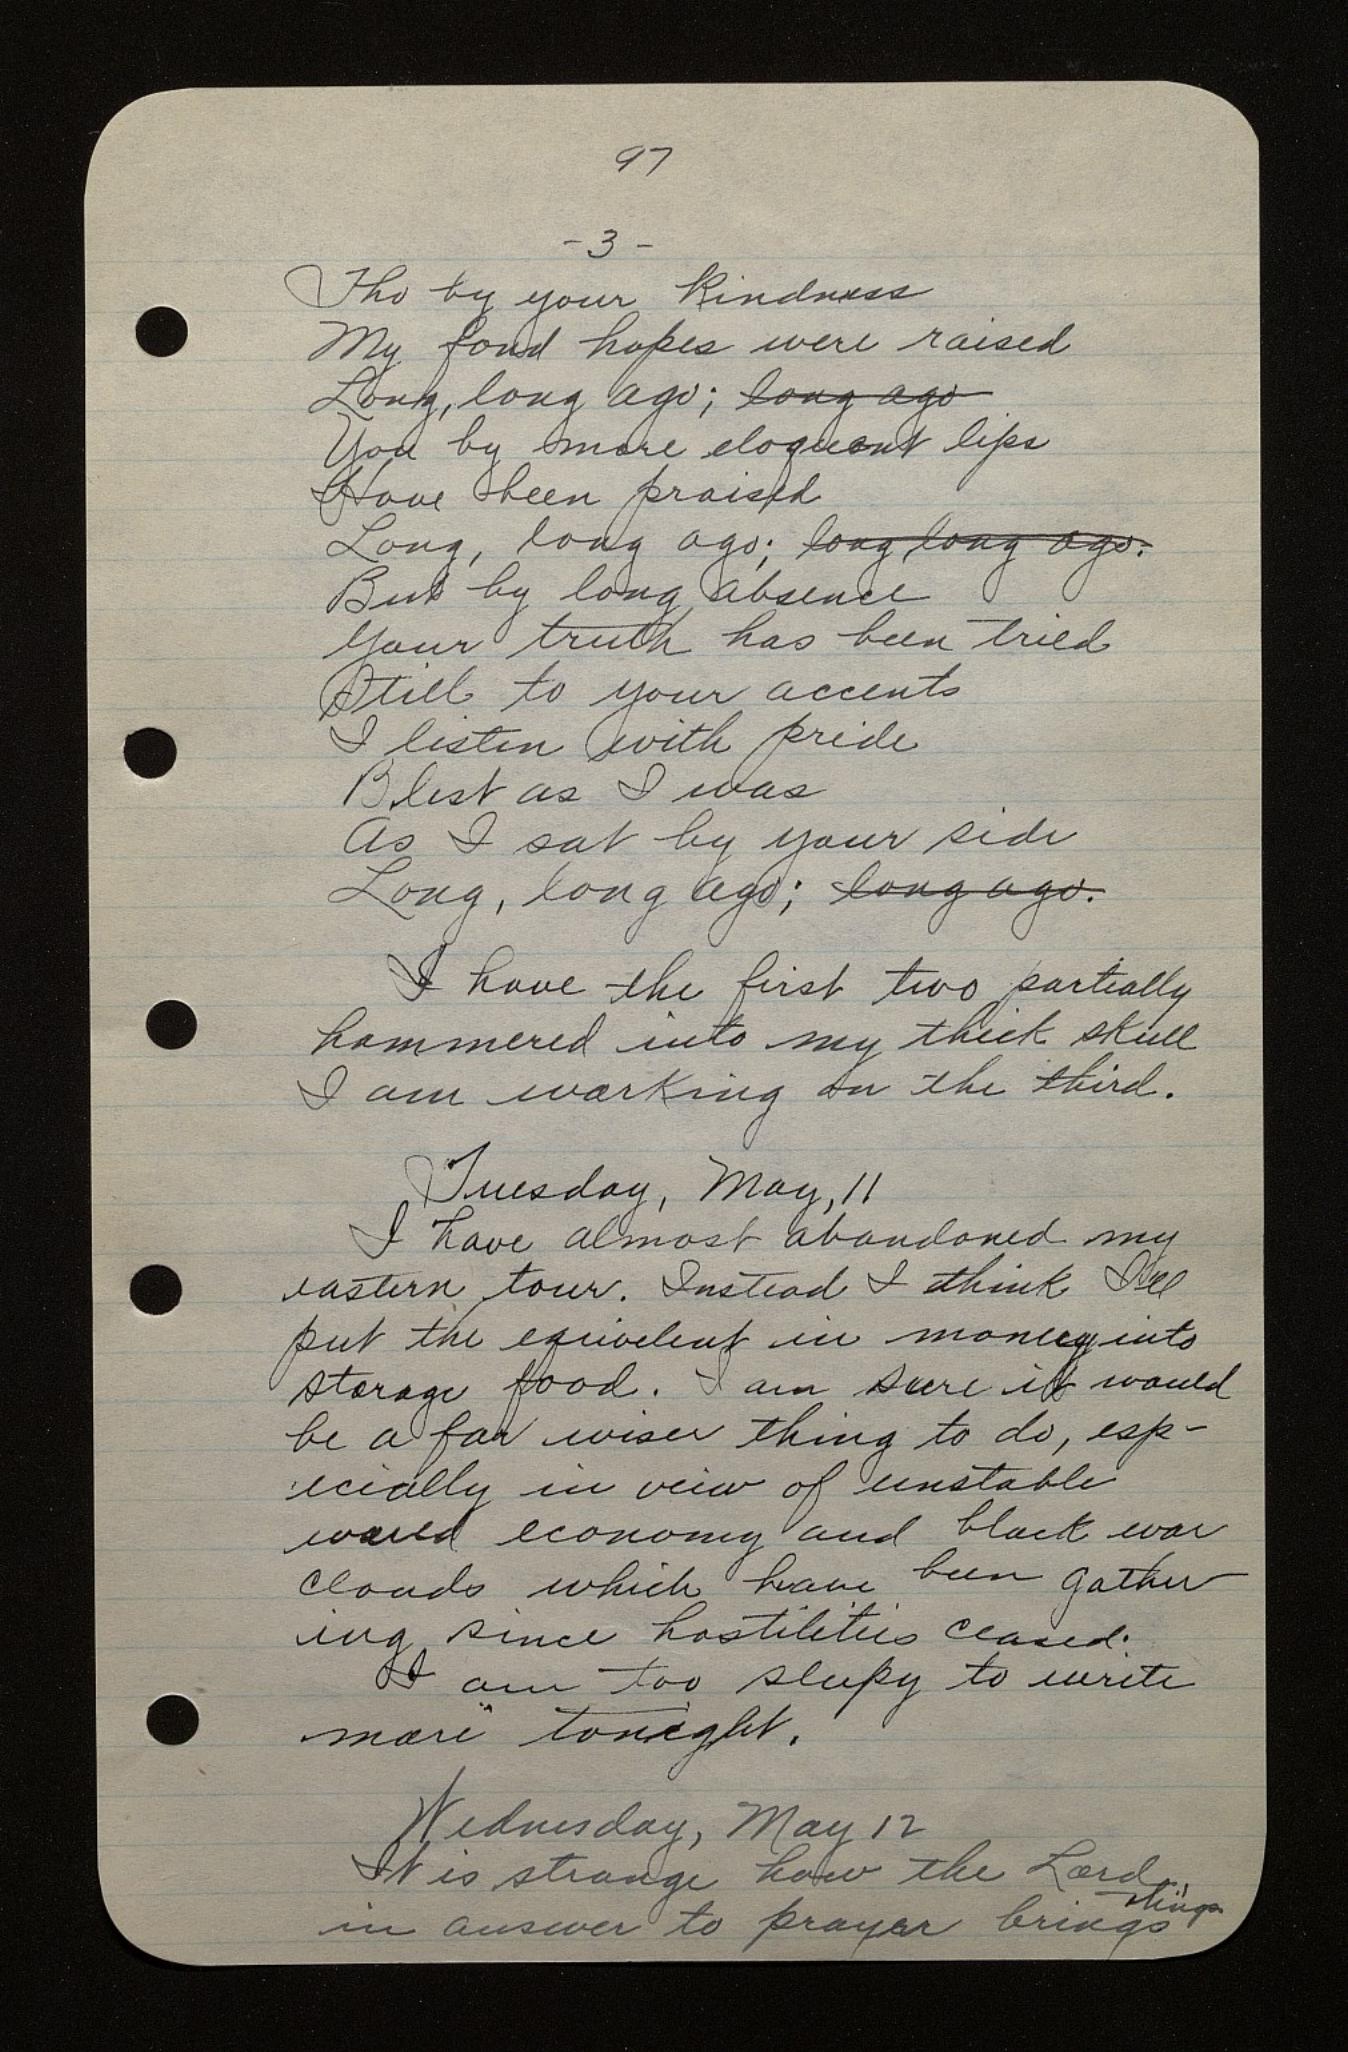 97
- 3 -
Tho by your kindness
My fond hopes were raised
Long, long ago; long ago
You by more eloquent lips
Have been praised
Long, long ago; long, long ago.
But by long absence
Your truth has been tried
Still to your accents
I listen with pride
Blest as I was
As I sat by your side
Long, long ago; long ago.
I have the first two partially
hammered into my thick skull
I am working on the third.
Tuesday, May, 11
I have almost abandoned my
eastern tour. Instead I think I'll
put the equivelent in money into
storage food. I am sure it would
be a far wiser thing to do, esp-
ecially in view of unstable
world economy and black war
clouds which have been gather
ing since hostilities ceased.
I am too sleepy to write
more tonight.
Wednesday, May 12
It is strange how the Lord,
in answer to prayer brings things